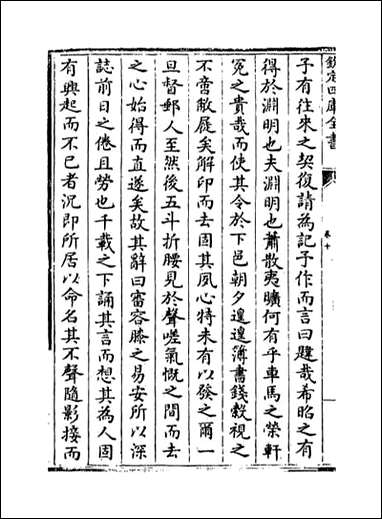 欽定四庫全書
卷十
子有往來之契復請為記子作而言曰韙哉希昭之有
得於淵明也夫淵明也蕭散夷曠何有乎車馬之榮軒
冕之貴哉而使其令於下邑朝夕遑遑簿書錢穀視之
不啻敝屣矣解印而去固其夙心特未有以發之爾一
旦督郵人至然後五斗折腰見於聲嗟氣慨之間而去
之心始得而直遂矣故其辭曰審容膝之易安所以深
誌前日之倦且勞也千載之下誦其言而想其為人固
有興起而不已者況即所居以命名其不聲隨影接而